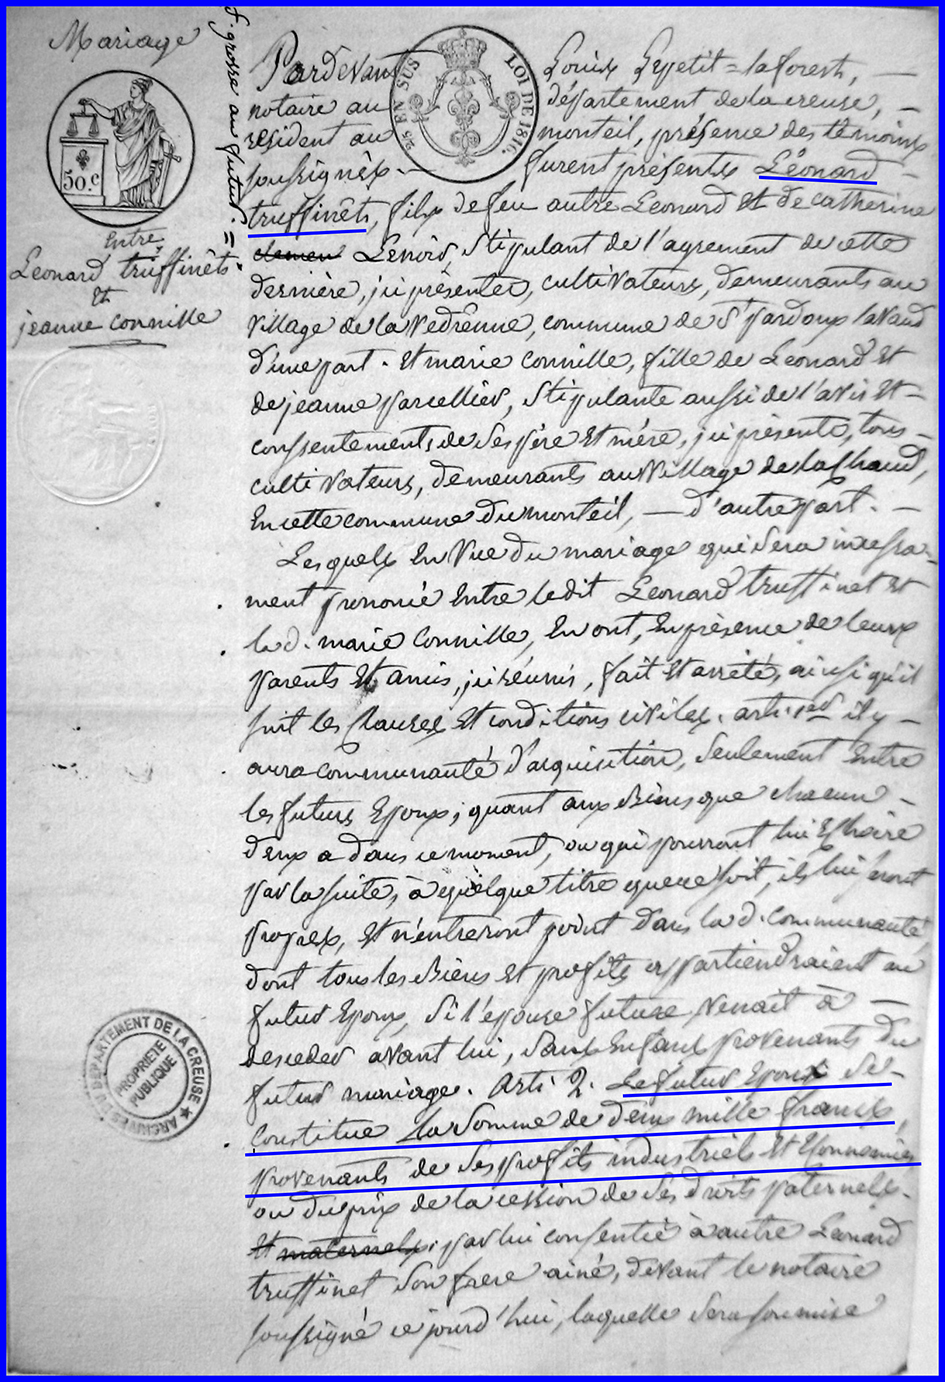 Mariage
f. grosse au futur. =
50.c
entre
Leonard truffinêts
Et
jeanne connille
25 EN SUS
LOI DE 1816.
Pardevant Louis Lepetit=laforest, —
notaire au département de la creuse, —
résident au monteil, présence des témoins
soussignés. — furent présents Léonard —
truffinêts, fils de feu autre Leonard Et de Catherine
Lenoir, stipulant de l'agrement de cette
dernière, ici présente, cultivateurs, demeurants au
village de la Vedrenne, commune de St Pardoux lavaud
d'une part. Et marie connille, fille de Leonard Et
de jeanne parcellier, stipulante aussi de l'avis Et —
consentements de ses père Et mère, ici présents, tous —
cultivateurs, demeurants au village de laChaud,
En cette commune du monteil, — d'autre part. —
Lesquels En Vue du mariage qui sera incessa-
ment prononcé Entre ledit Leonard truffinet Et
la d. marie Connille, En ont, En présence de leurs
parents Et amis, ici réunis, fait Et arrêté, ainsi qu'il
suit les Clauses Et conditions civiles. arti. 1er il y —
aura communauté d'acquisition, seulement Entre
les futurs Epoux; quant aux Biens que chacun —
d'eux a dans ce moment, ou qui pourront lui Echoire
par la suite, à quelque titre que ce soit, ils lui seront
propres, Et n'entreront point dans la d. Communauté
dont tous les Biens Et profits appartiendraient au
futur Epoux, si l'epouse future venait à —
deceder avant lui, sans Enfant provenants du
futur mariage. Arti 2. Le futur Epoux se —
Constitue la somme de deux mille francs,
provenants de ses profits industriels Et Economies
ou du prix de la cession de ses droits paternels.
Et maternels, par lui consentie à autre Leonard
truffinet son frere ainé, devant le notaire
soussigné ce jourd'hui, laquelle sera soumise
ARCHIVES DU DÉPARTEMENT DE LA CREUSE
PROPRIÉTÉ
PUBLIQUE